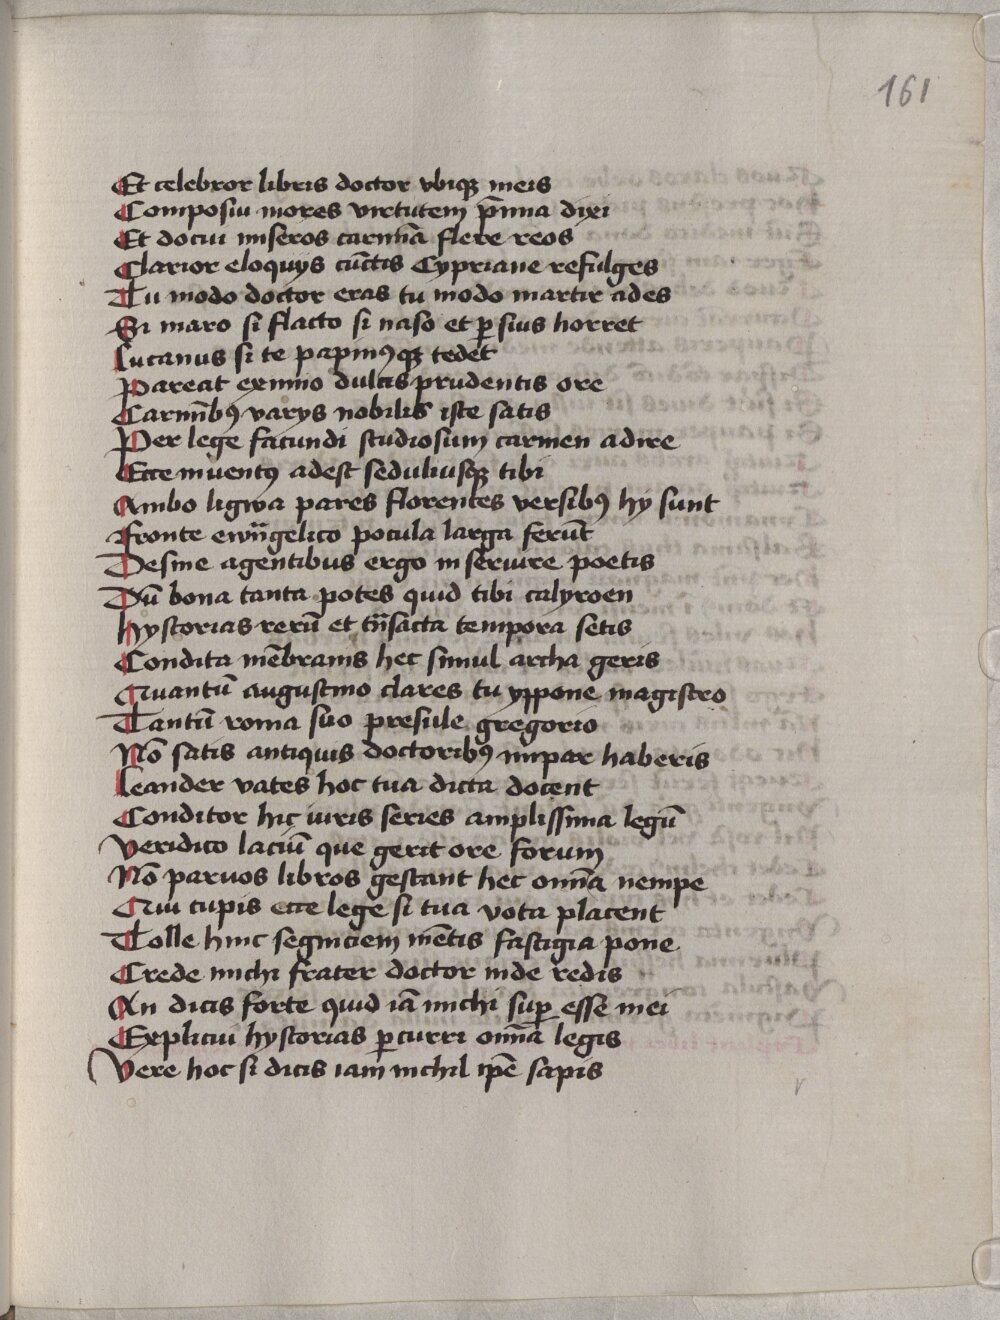 161
Et celebror libris doctor vbiqꝫ meis
Composui mores virtutem p̄mia dixi
Et docui miseros carmīa flere reos
Clarior eloquys cūctis Cypriane refulges
Tu modo doctor eras tu modo martir ades
Si maro si flacco si naso et ꝑsius horret
Lucanus si te papiniꝰqꝫ tedet
Pareat eximio dulcis prudentis ore
Carmībꝰ varys nobilis iste satis
Per lege facundi studiosum carmen adire
Ecce inuentꝰ adest seduliusqꝫ tibi
Ambo ligwa pares florentes versibꝰ hy sunt
Fronte ewāngelico pocula larga ferūt
Desine agentibus ergo inseruire poetis
Dū bona tanta potes quid tibi calyroen
hystorias rerū et trāsacta tempora setis
Condita mēbranis hec simul archa geris
Quantū augustino clares tu yppone magistro
Tantū roma suo presule gregorio
Nō satis antiquis doctoribꝰ impar haberis
leander vates hoc tua dicta docent
Conditor hic iuris series amplissima legū
Veridico laciū que gerit ore forum
Nō paruos libros gestant hec omīa nempe
Qui cupis ecce lege si tua vota placent
Tolle hinc segniciem mētis fastigia pone
Crede michi frater doctor inde redis
An dicis forte quid iā michi suꝑ esse mei
Explicui hystorias ꝑcurri omīa legis
Vere hoc si dicis iam nichil ip̄e sapis